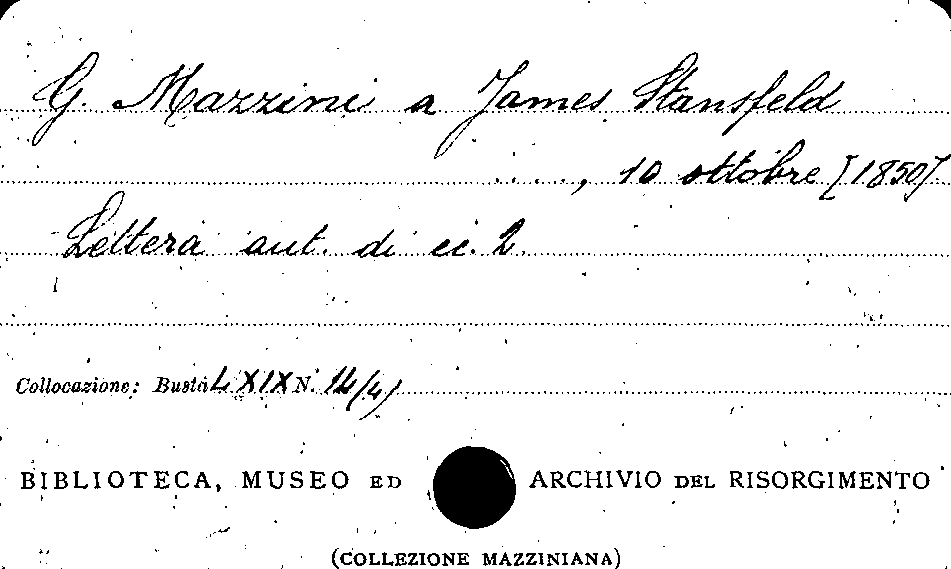 G. Mazzini a James Stansfeld
....., 10 ottobre [1850]
Lettera aut. di cc. 2
Collocazione: Busta LXIX N. 14(4)
BIBLIOTECA, MUSEO ED ARCHIVIO DEL RISORGIMENTO
(COLLEZIONE MAZZINIANA)